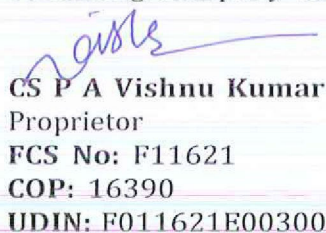 CS P A Vishnu Kumar
Proprietor
FCS No: F11621
COP: 16390
UDIN: F011621E00300